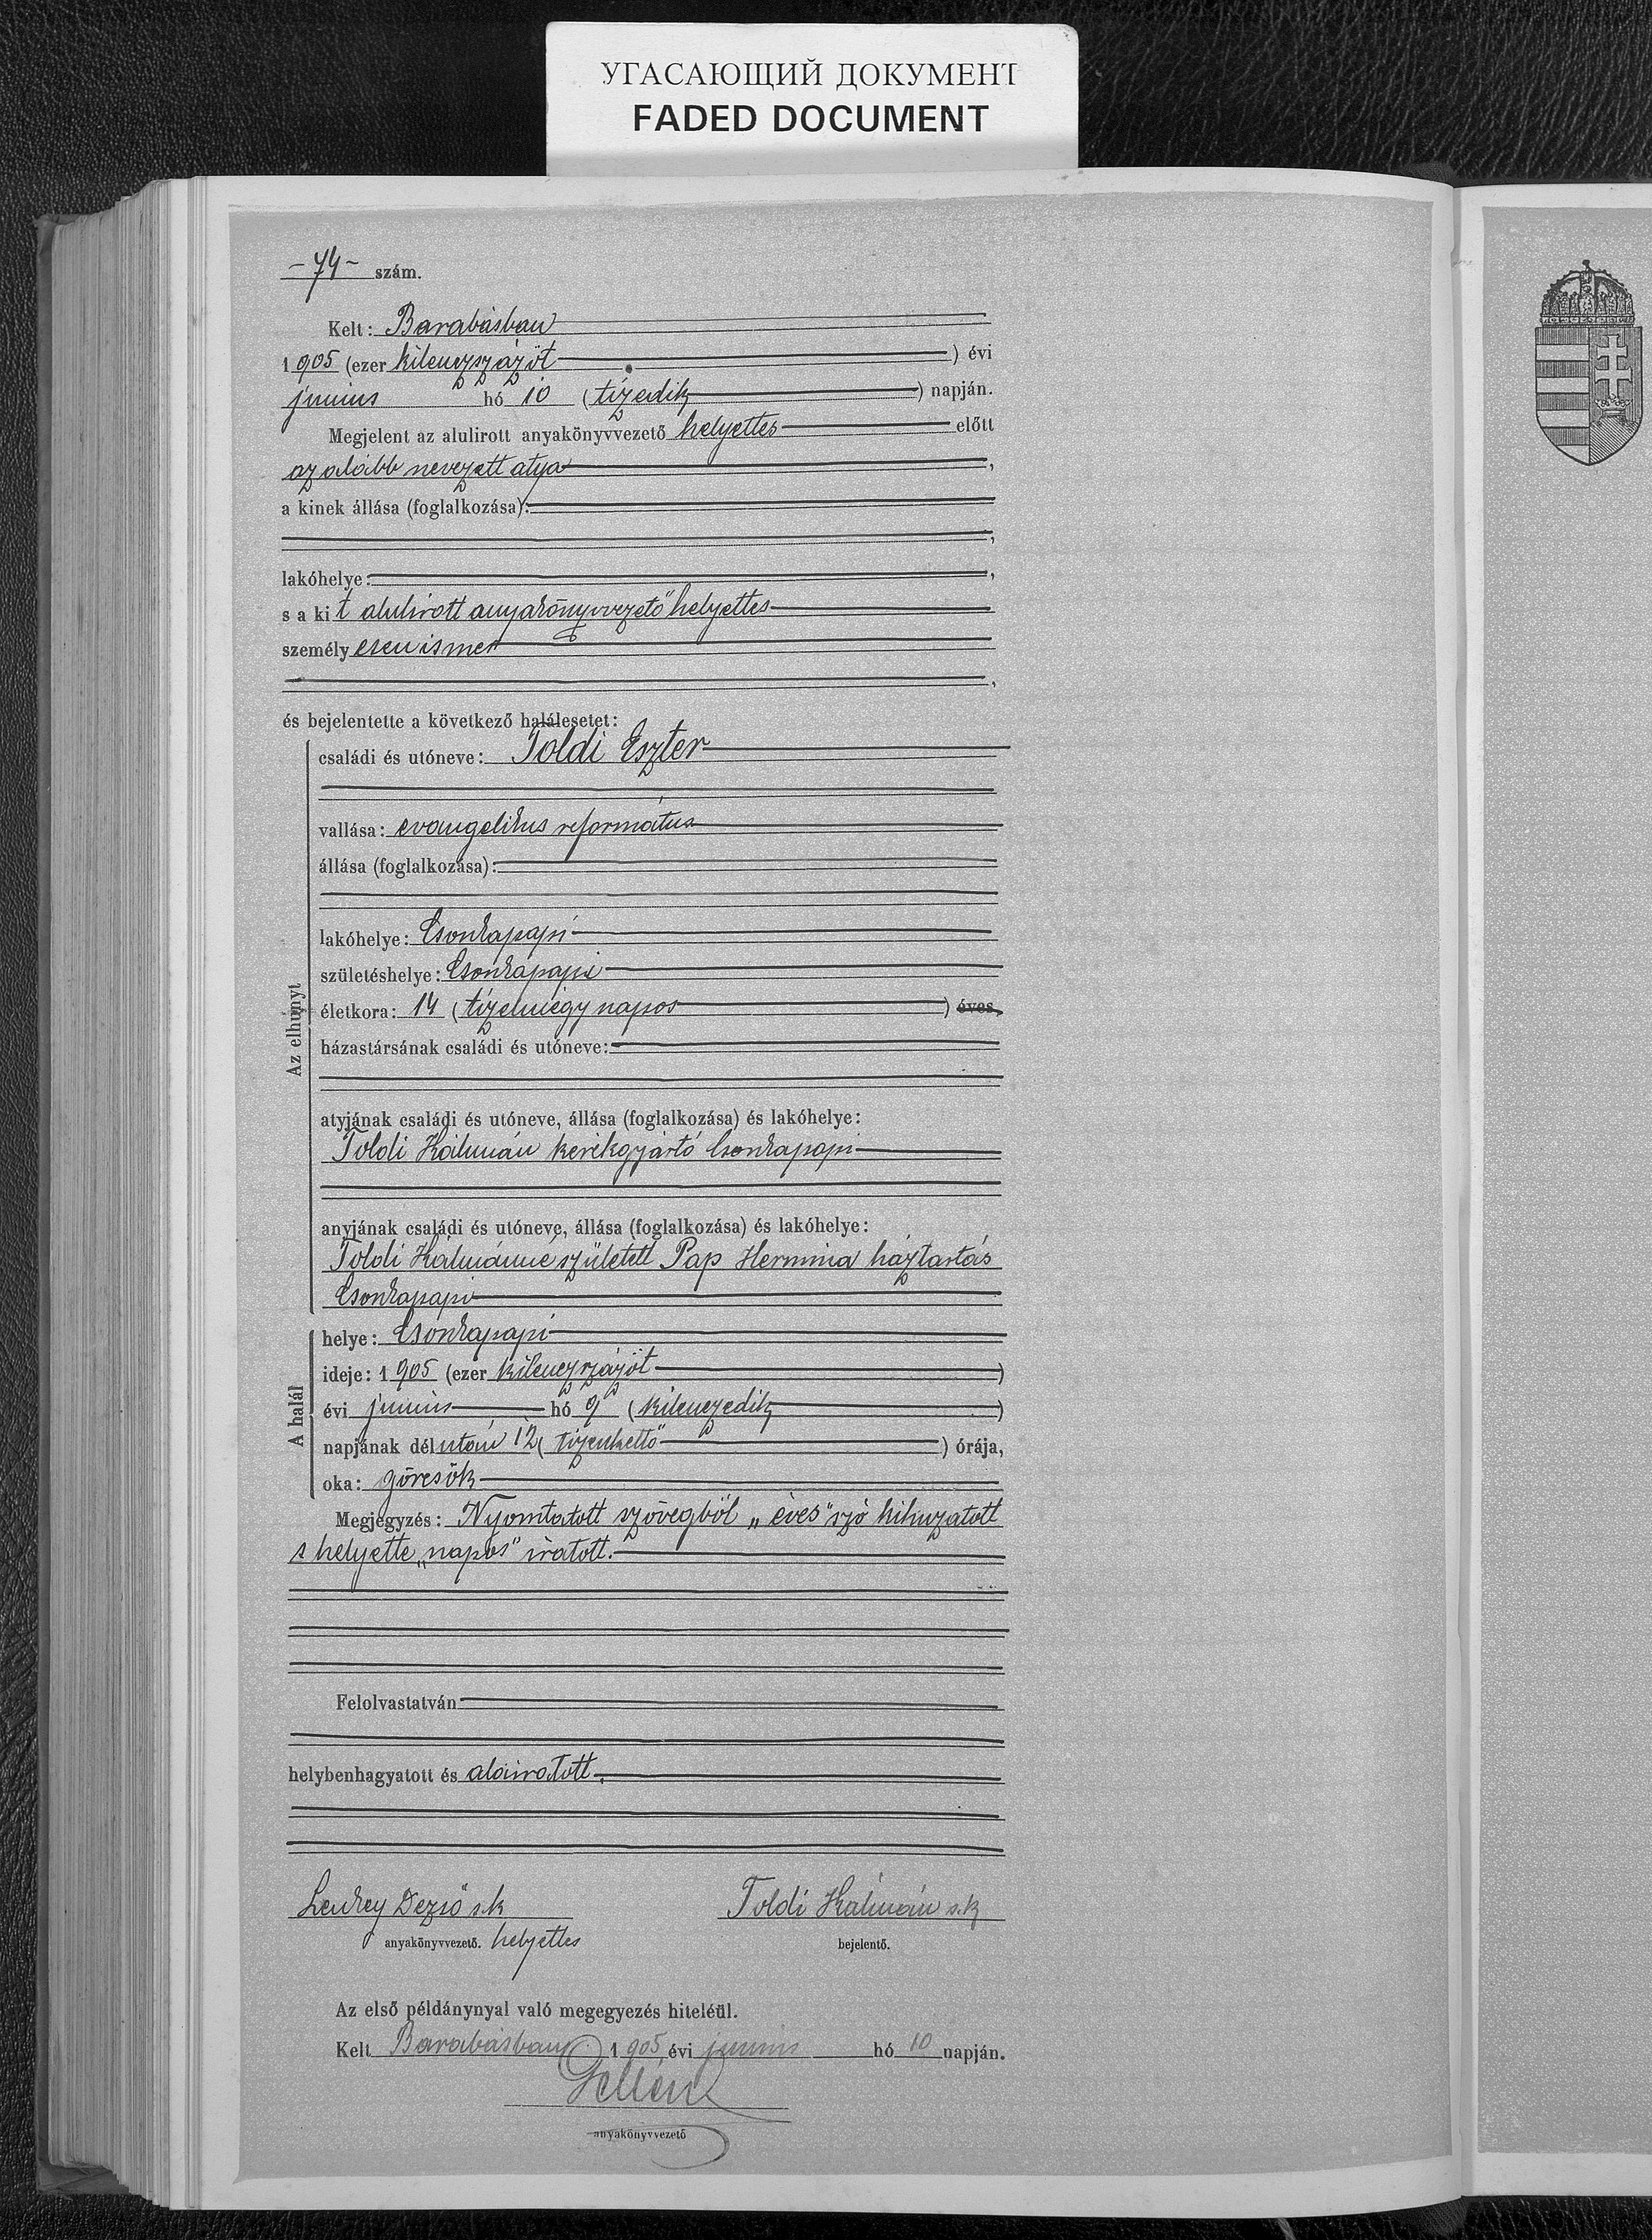 УГАСАЮЩИЙ ДОКУМЕНТ
FADED DOCUMENT
- 74 - szám.
Kelt: Barabásban
1905 (ezer kilenczszázöt) évi
junius hó 10 (tizedik) napján.
Megjelent az alulirott anyakönyvvezető helyettes előtt
az alább nevezett atya,
a kinek állása (foglalkozása):
,
lakóhelye: ,
s a kit alulirott anyakönyvvezető helyettes
személyesen ismer
,
és bejelentette a következő halálesetet:
Az elhúnyt
családi és utóneve: Toldi Eszter
vallása: evangelikus református
állása (foglalkozása):
lakóhelye: Csonkapapi
születéshelye: Csonkapapi
életkora: 14 (tizennégy napos) éves,
házastársának családi és utóneve:
atyjának családi és utóneve, állása (foglalkozása) és lakóhelye:
Toldi Kálmán kerékgyártó Csonkapapi
anyjának családi és utóneve, állása (foglalkozása) és lakóhelye:
Toldi Kálmánné született Pap Hermina háztartás
Csonkapapi
A halál
helye: Csonkapapi
ideje: 1905 (ezer kilenczszázöt)
évi junius hó 9 (kilenczedik)
napjának délután 12 (tizenkettő) órája,
oka: görcsök
Megjegyzés: Nyomtatott szövegből „éves" szó kihuzatott
s helyette „napos" iratott.
Felolvastatván
helybenhagyatott és aláiratott.
Dezső s.k Toldi Kálmán s.k
anyakönyvvezető. helyettes bejelentő.
Az első példánynyal való megegyezés hiteléül.
Kelt Barabásban 1905 évi junius hó 10 napján.
Gellén
anyakönyvvezető